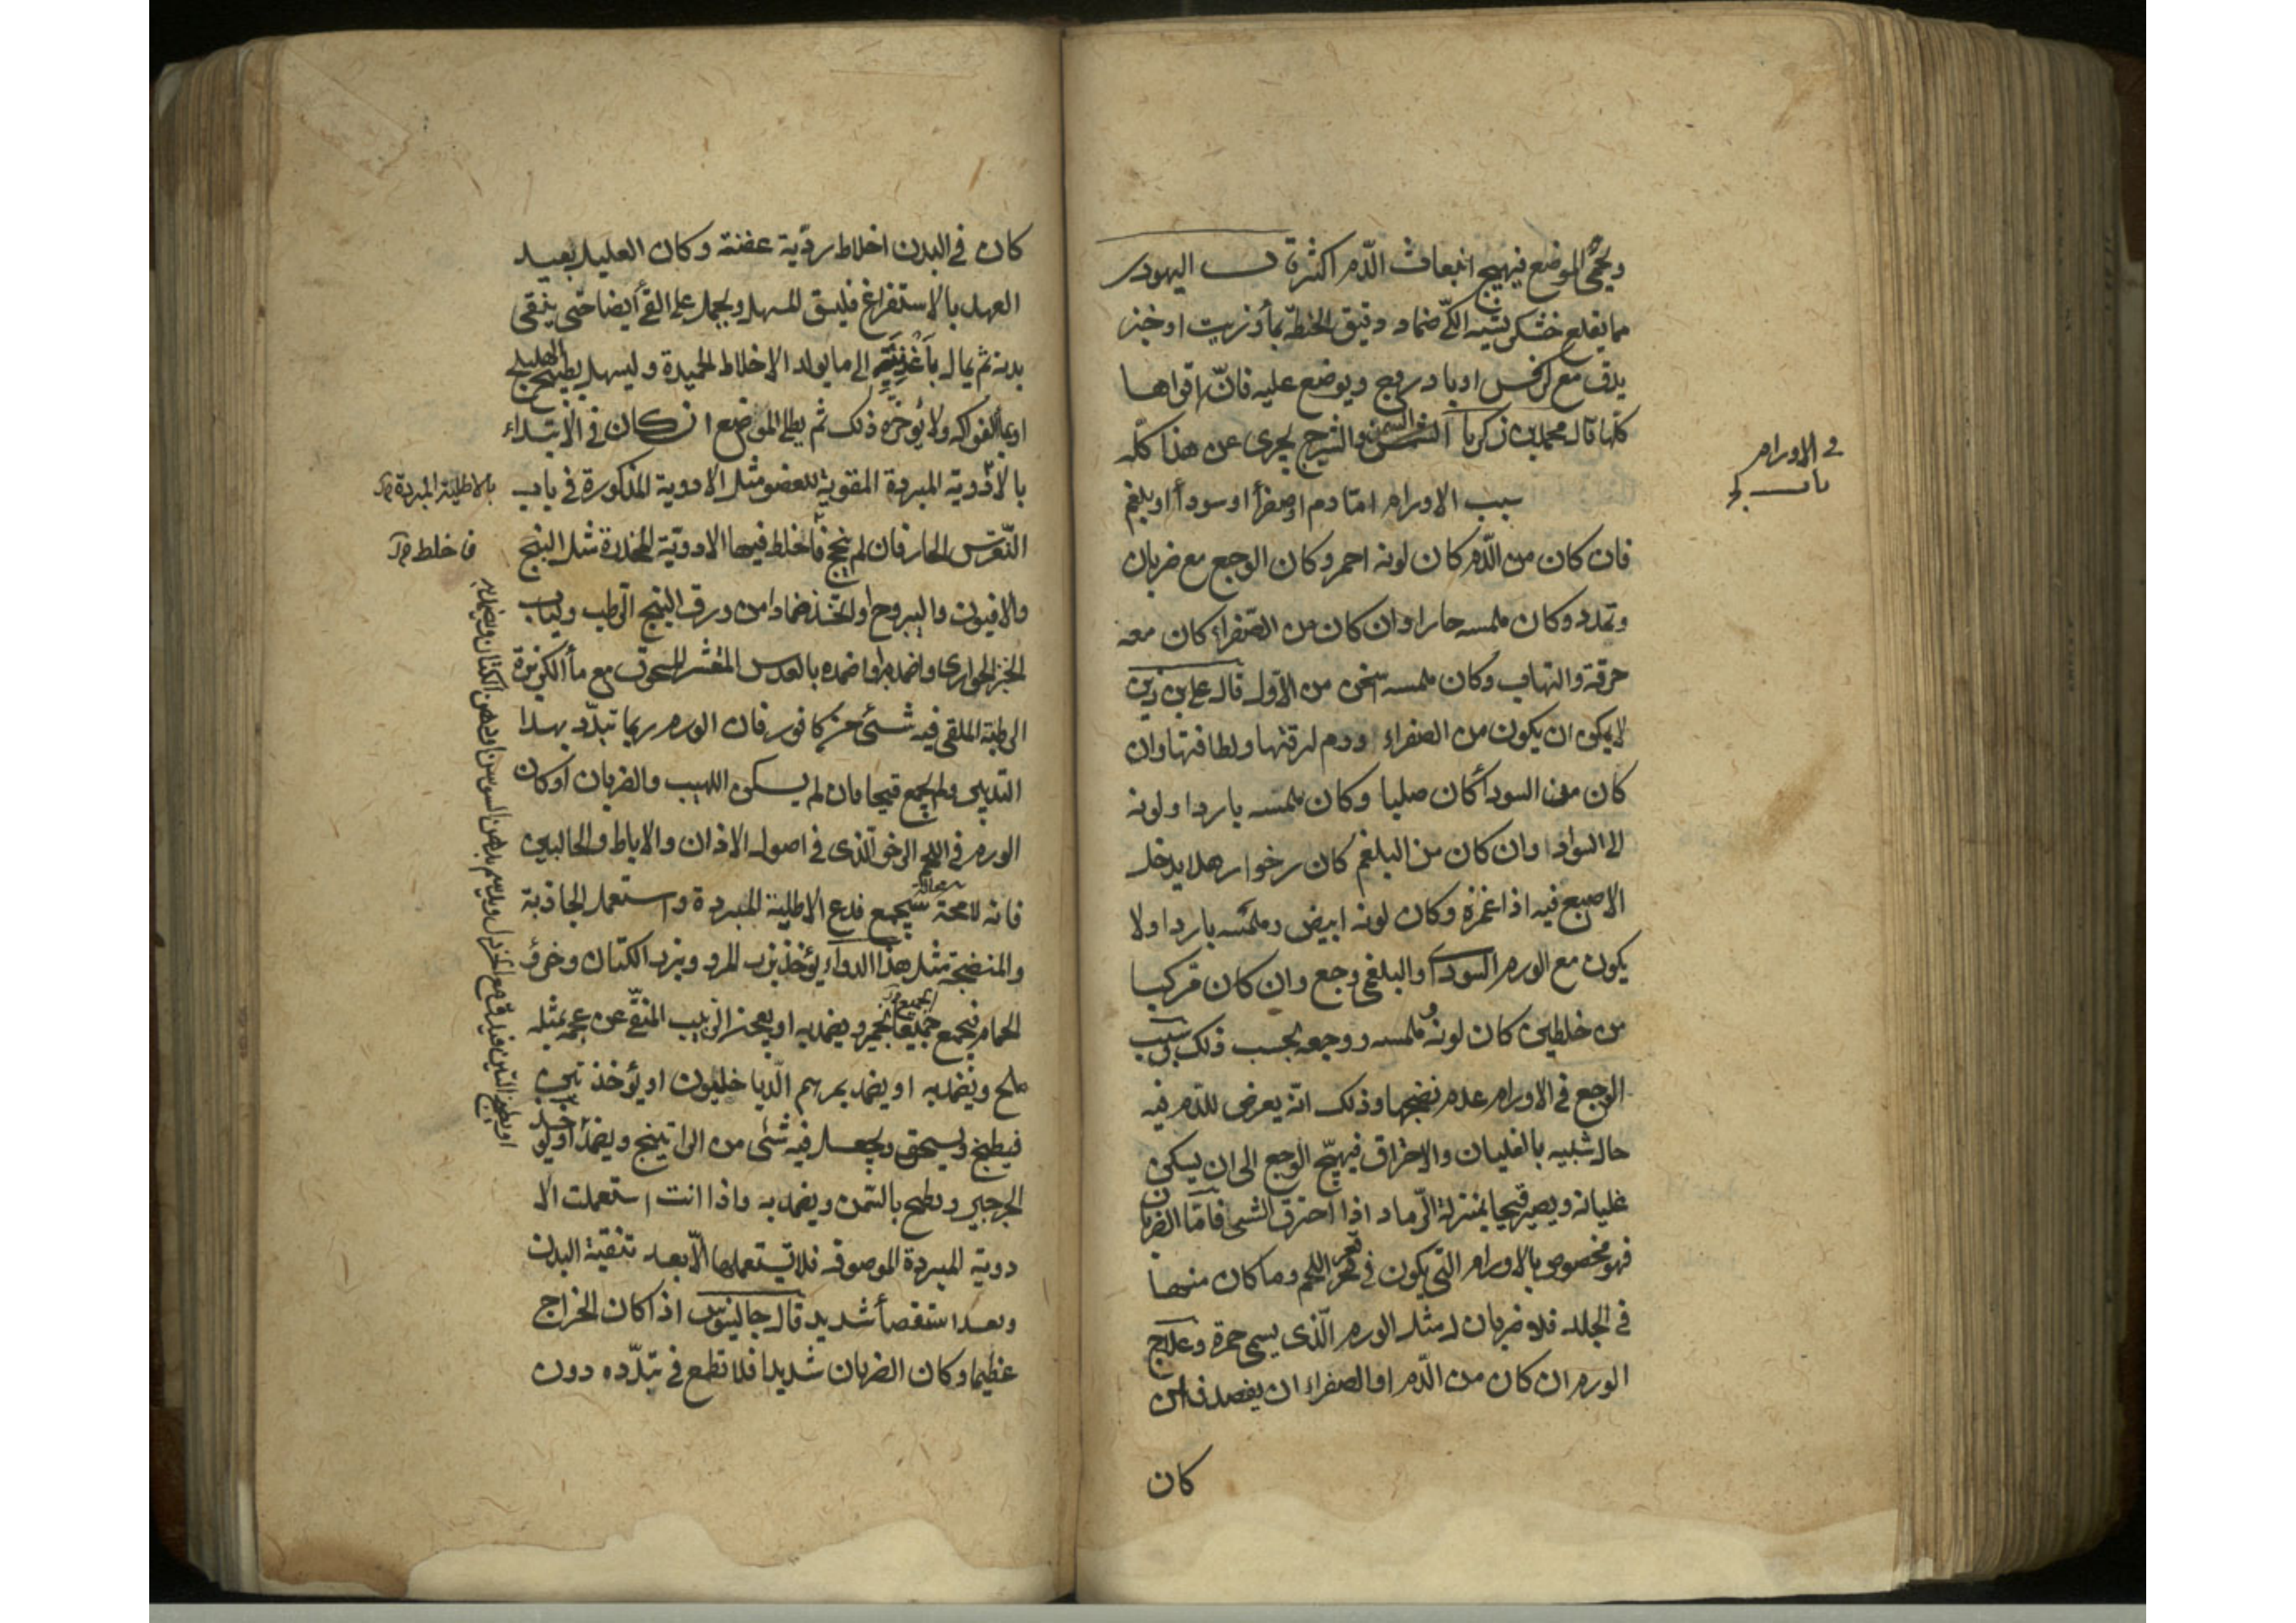 ويحمى الموضع فيهيج انبعاث الدّم اكثرة ب اليهودى
مما يقلع خشكريشيه الكّى ضماد دقيق الحنطة بمأ وزيت او خبز
يدق مع كرفس او باد روج ويوضع عليه فانّ اقواها
كلها قال محمد بن زكريا السمن والشيرج يجزى عن هذا كلّه
سبب الاورام امّا دم او صفرأ او سودأ او بلغم
فى الاورام
باب
فان كان من الدّم كان لونه احمر وكان الوجع مع ضربان
وتمدد وكان ملمسه حارا وان كان من الصّفراء كان معه
حرقة والتهاب وكان ملمسه اسخن من الاوّل قال على بن زين
لا يمكن ان يكون من الصفراء ودم لرقتها ولطافتها وان
كان من السودأ كان صلبا وكان ملمسه باردا ولونه
الى السواد وان كان من البلغم كان رخوا رهلا يدخل
الاصبع فيه اذا غمزه وكان لونه ابيض وملمسه باردا ولا
يكون مع الورم السودى والبلغمى وجع وان كان مركبا
من خلطين كان لونه وملمسه ووجعه بحسب ذلك سبب
الوجع فى الاورام عدم نضجها وذلك انّه يعرض للدّم فيه
حال شبيه بالغليان والاحتراق فيهيّج الوجع الى ان يسكن
غليانه ويصير قيحا بمنزلة الرّماد اذا احترق الشى فامّا الضربان
فهو مخصوص بالاورام التى يكون فى قعر اللحم وما كان منها
فى الجلد فلا ضربان له مثل الورم الّذى يسمى حمرة وعلاج
الورم ان كان من الدّم او الصفراء ان يفصد فان
كان
كان فى البدن اخلاط رديّة عفنة وكان العليل بعيد
العهد بالاستفراغ فليسق المسهل ويحمل على القئ أيضا حتى ينقى
بدنه ثم يمال باغذيته الى ما يولد الاخلاط الحميدة وليسهل بطبيخ الهليلج
او بمأ الفواكه ولا يؤخره ذلك ثم يطلى الموضع ان كان فى الابتداء
بالادوية المبردة المقوية للعضو مثل الادوية المذكورة فى باب
بالاطلية المبردة
النّقرس الحار فان لم ينجح فاخلط فيها الادويّة المخدرة مثل البنج
فى خلط
والافيون واليبروح او اتخذ ضمادا من ورق البنج الرّطب ولباب
الخبز الحوارى واضمده او اضمده بالعدس المقشر المسحوق مع مأ الكزبرة
الرطبة الملقى فيه شئ من كافور فان الورم ربما تبدّد بهذا
التدبير ولم يجمع قيحا فان لم يسكن اللهيب والضربان او كان
الورم فى اللحم الرخو الّذى فى اصول الاذان والاباط والحالبين
فانه لا محالة سيجمع فدع الاطلية المبردة واستعمل الجاذبة
والمنضجة مثل هذا الدواء يؤخذ بزر المرو وبزر الكتان وخرؤ
الحمام فيجمع جميعا بخمير ويضمد به او يعجن الزبيب المنقّى عن عجمه بمثله
ملح ويضمد به او يضمد بمرهم الدّياخليون او يؤخذ تين
فيطبخ ويسحق ويجعل فيه شئى من الراتينج ويضمد او يؤخذ
الجرجير ويطبخ بالسّمن ويضمد به واذا انت استعملت الا
دوية المبردة الموصوفه فلا تستعملها الّا بعد تنقية البدن
وبعد استقصأ شديد قال جالينوس اذا كان الخراج
عظيما وكان الضربان شديدا فلا تطمع فى تبدّده دون
او يطبخ التين فيدق مع الخردل ويدسم بدهن السوسن او دهن الكتان ويضمد به